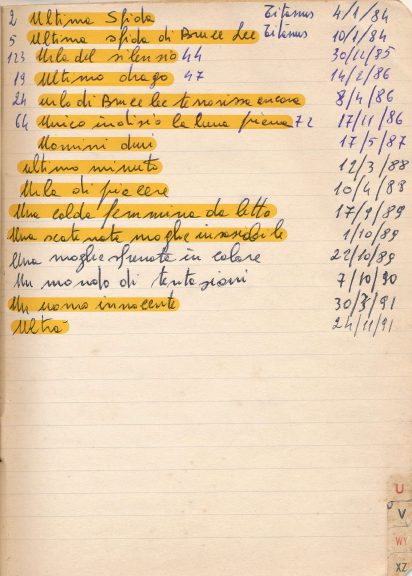 2 Ultima Sfida Titanus 4/1/84
5 Ultima sfida di Bruce Lee Titanus 10/1/84
123 Urla del silensio 44 30/12/85
19 Ultimo drago 47 14/2/86
24 urlo di Bruce lee terrorissa ancora 8/4/86
64 Unico indisio la luna piena 72 17/11/86
Uomini duri 17/5/87
ultimo minuto 12/3/88
Urla di piacere 10/4/88
Una calda femmina da letto 17/9/89
Una scatenata moglie insasiabile 1/10/89
Una moglie sfrenata in calore 22/10/89
Un mondo di tentasioni 7/10/90
Un uomo innocente 30/3/91
Ultrà 24/11/91
U
V
WY
XZ